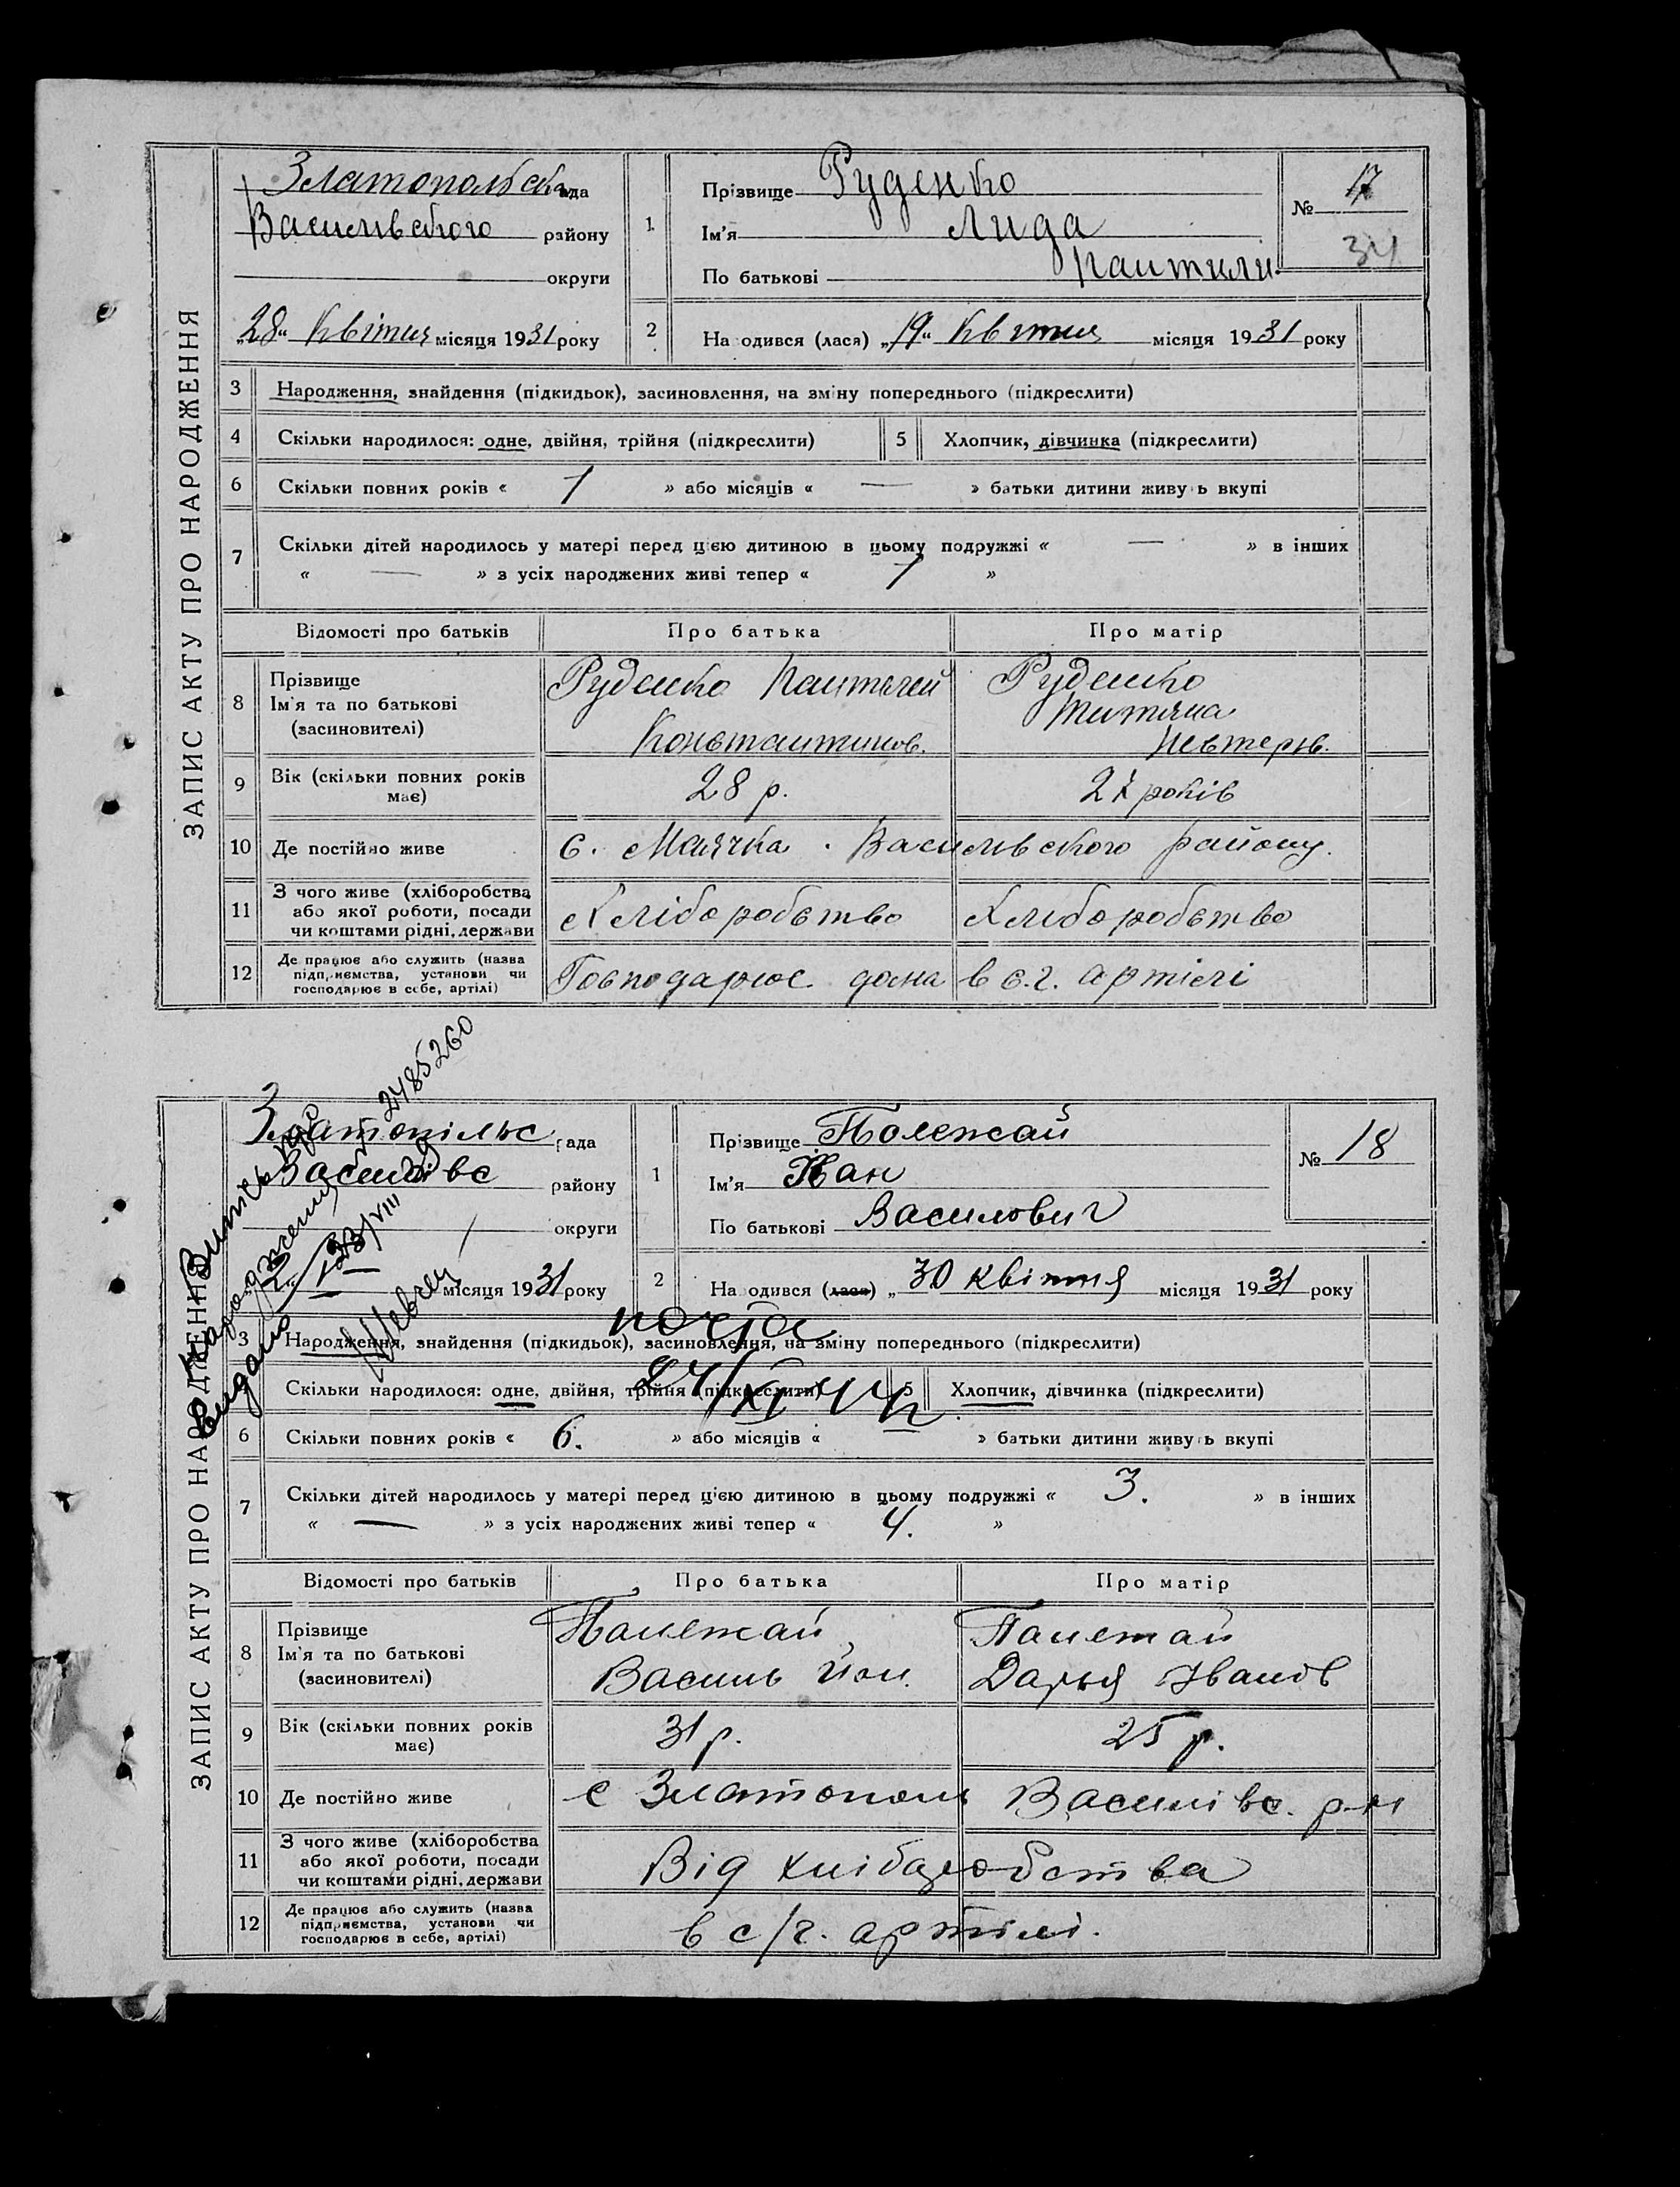 ЗАПИС АКТУ ПРО НАРОДЖЕННЯ
Златопольська рада
Васильвського району
округи
„28“ Квітня місяця 1931 року
1
Прізвище Руденко
Ім'я Лида
По батькові Пантили.
№ 17
34
2 Народився (лася) „19“ Квітня місяця 1931 року
3 Народження, знайдення (підкидьок), засиновлення, на зміну попереднього (підкреслити)
4 Скільки народилося: одне, двійня, трійня (підкреслити) 5 Хлопчик, дівчинка (підкреслити)
6 Скільки повних років « 1 » або місяців « — » батьки дитини живуть вкупі
7 Скільки дітей народилось у матері перед цією дитиною в цьому подружжі « — » в інших
« — » з усіх народжених живі тепер « 1 »
Відомості про батьків Про батька Про матір
8 Прізвище
Ім'я та по батькові
(засиновителі)
Руденко Пантелей
Констаптинов.
Руденко
Титяна
Нестерів.
9 Вік (скільки повних років
має)
28 р. 27 років
10 Де постійно живе с. Маячка. Васильвского району.
11 З чого живе (хліборобства
або якої роботи, посади
чи коштами рідні, держави
Хліборобство Хліборобство
12 Де працює або служить (назва
підприємства, установи чи
господарює в себе, артілі)
Господарює дома в с.г. артілі
ЗАПИС АКТУ ПРО НАРОДЖЕННЯ
Златопільс рада
Василівс району
округи
місяця 1931 року
2485260
Видано
1
Прізвище Полежай
Ім'я Іван
По батькові Василович
№ 18
2 Народився (лася) „30 квітня місяця 1931 року
3 Народження, знайдення (підкидьок), засиновлення, на зміну попереднього (підкреслити)
Скільки народилося: одне, двійня, трійня (підкреслити) 5 Хлопчик, дівчинка (підкреслити)
6 Скільки повних років « 6. » або місяців « — » батьки дитини живуть вкупі
7 Скільки дітей народилось у матері перед цією дитиною в цьому подружжі « 3. » в інших
« — » з усіх народжених живі тепер « 4. »
Відомості про батьків Про батька Про матір
8 Прізвище
Ім'я та по батькові
(засиновителі)
Полежай
Василь
Полежай
Дарья Іванов
9 Вік (скільки повних років
має)
31 р. 25 р.
10 Де постійно живе с Златополь Василівс. р-н
11 З чого живе (хліборобства
або якої роботи, посади
чи коштами рідні, держави
Від хліборобства
12 Де працює або служить (назва
підприємства, установи чи
господарює в себе, артілі)
в с/г. артілі.